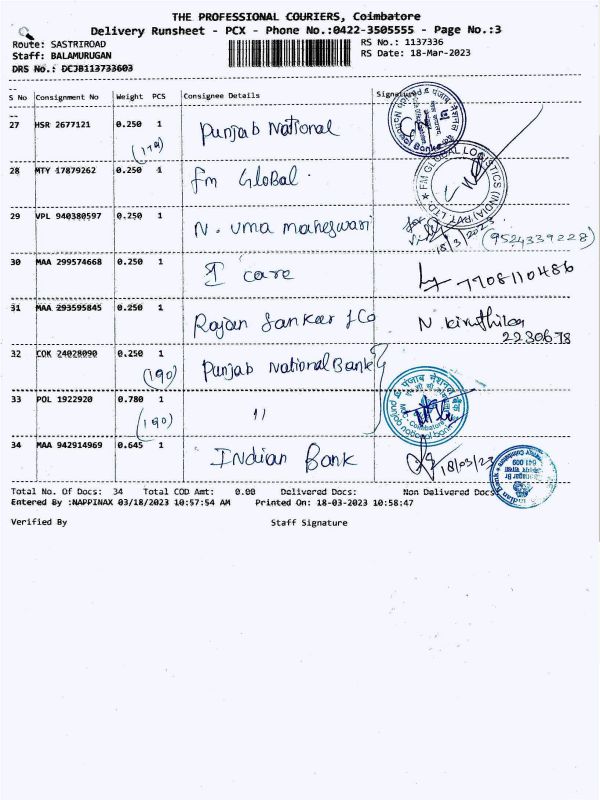 THE PROFESSIONAL COURIERS, Coimbatore
Delivery Runsheet - PCX - Phone No.:0422-3505555 - Page No.:3
Route: SASTRIROAD
RS No.: 1137336
Staff: BALAMURUGAN
RS Date: 18-Mar-2023
DRS No.: DCJB113733603
S No Consignment No Weight PCS Consignee Details Signature
27 HSR 2677121 0.250 1 Punjab National
28 MTY 17879262 0.250 1 Fm Global.
FM GLOBAL LOGISTICS (INDIA) PVT LTD.
29 VPL 940380597 0.250 1 N. uma maheswari
18/3/2023 (9524339228)
30 MAA 299574668 0.250 1 I care 7708110486
31 MAA 293595845 0.250 1 Rajan Sankar & Co N. kiruthika
2230678
32 COK 24028090 0.250 1 Punjab National Bank
(190)
33 POL 1922920 0.780 1 "
(190)
पंजाब नेशनल बैंक
punjab national bank
34 MAA 942914969 0.645 1 Indian Bank 18/03/23
641 009
Total No. Of Docs: 34 Total COD Amt: 0.00 Delivered Docs: Non Delivered Docs
Entered By :NAPPINAX 03/18/2023 10:57:54 AM Printed On: 18-03-2023 10:58:47
Verified By Staff Signature